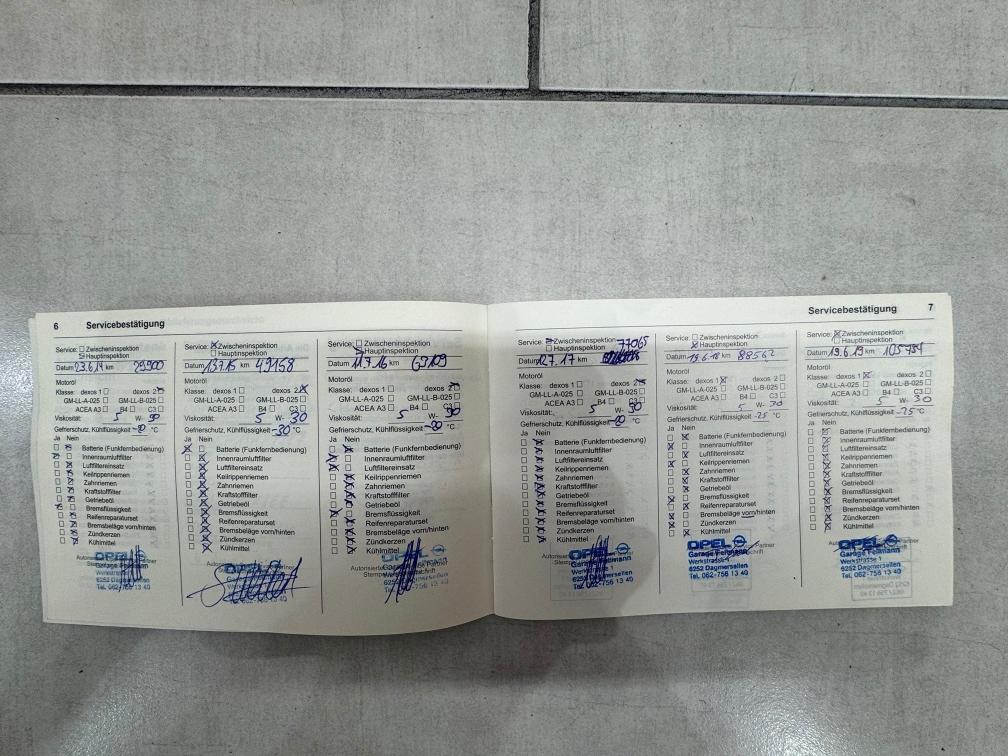 6 Servicebestätigung
Service: Zwischeninspektion
Hauptinspektion
Datum 23.6.14 km 29900
Motoröl
Klasse: dexos 1 dexos 2
GM-LL-A-025 GM-LL-B-025
ACEA A3 B4 C3
Viskosität: 5 W-
Gefrierschutz, Kühlflüssigkeit °C
Ja Nein
Batterie (Funkfernbedienung)
Innenraumluftfilter
Luftfiltereinsatz
Keilrippenriemen
Zahnriemen
Kraftstofffilter
Getriebeöl
Bremsflüssigkeit
Reifenreparaturset
Bremsbeläge vorn/hinten
Zündkerzen
Kühlmittel
OPEL
Partner
6252 Dagmersellen
Tel. 062-756 13 40
Service: Zwischeninspektion
Hauptinspektion
Datum 13.7.15 km 49168
Motoröl
Klasse: dexos 1 dexos 2
GM-LL-A-025 GM-LL-B-025
ACEA A3 B4 C3
Viskosität: 5 W- 30
Gefrierschutz, Kühlflüssigkeit -30 °C
Ja Nein
Batterie (Funkfernbedienung)
Innenraumluftfilter
Luftfiltereinsatz
Keilrippenriemen
Zahnriemen
Kraftstofffilter
Getriebeöl
Bremsflüssigkeit
Reifenreparaturset
Bremsbeläge vorn/hinten
Zündkerzen
Kühlmittel
OPEL
Service: Zwischeninspektion
Hauptinspektion
Datum 11.7.16 km 69109
Motoröl
Klasse: dexos 1 dexos 2
GM-LL-A-025 GM-LL-B-025
ACEA A3 B4 C3
Viskosität: 5 W-
Gefrierschutz, Kühlflüssigkeit °C
Ja Nein
Batterie (Funkfernbedienung)
Innenraumluftfilter
Luftfiltereinsatz
Keilrippenriemen
Zahnriemen
Kraftstofffilter
Getriebeöl
Bremsflüssigkeit
Reifenreparaturset
Bremsbeläge vorn/hinten
Zündkerzen
Kühlmittel
OPEL
Partner
Tel. 062-756 13 40
Servicebestätigung 7
Service: Zwischeninspektion
Hauptinspektion 77065
Datum 12.7.17 km
Motoröl
Klasse: dexos 1 dexos 2
GM-LL-A-025 GM-LL-B-025
ACEA A3 B4 C3
Viskosität: 5 W-
Gefrierschutz, Kühlflüssigkeit °C
Ja Nein
Batterie (Funkfernbedienung)
Innenraumluftfilter
Luftfiltereinsatz
Keilrippenriemen
Zahnriemen
Kraftstofffilter
Getriebeöl
Bremsflüssigkeit
Reifenreparaturset
Bremsbeläge vorn/hinten
Zündkerzen
Kühlmittel
OPEL
Werkstrasse 1
6252 Dagmersellen
Tel. 062-756 13 40
Service: Zwischeninspektion
Hauptinspektion
Datum 19.6.18 km 88562
Motoröl
Klasse: dexos 1 dexos 2
GM-LL-A-025 GM-LL-B-025
ACEA A3 B4 C3
Viskosität: 5 W- 30
Gefrierschutz, Kühlflüssigkeit -25 °C
Ja Nein
Batterie (Funkfernbedienung)
Innenraumluftfilter
Luftfiltereinsatz
Keilrippenriemen
Zahnriemen
Kraftstofffilter
Getriebeöl
Bremsflüssigkeit
Reifenreparaturset
Bremsbeläge vorn/hinten
Zündkerzen
Kühlmittel
OPEL
Partner
Werkstrasse 1
6252 Dagmersellen
Tel. 062-756 13 40
Service: Zwischeninspektion
Hauptinspektion
Datum 19.6.19 km
Motoröl
Klasse: dexos 1 dexos 2
GM-LL-A-025 GM-LL-B-025
ACEA A3 B4 C3
Viskosität: 5 W- 30
Gefrierschutz, Kühlflüssigkeit -25 °C
Ja Nein
Batterie (Funkfernbedienung)
Innenraumluftfilter
Luftfiltereinsatz
Keilrippenriemen
Zahnriemen
Kraftstofffilter
Getriebeöl
Bremsflüssigkeit
Reifenreparaturset
Bremsbeläge vorn/hinten
Zündkerzen
Kühlmittel
OPEL
Partner
Werkstrasse 1
6252 Dagmersellen
Tel. 062-756 13 40